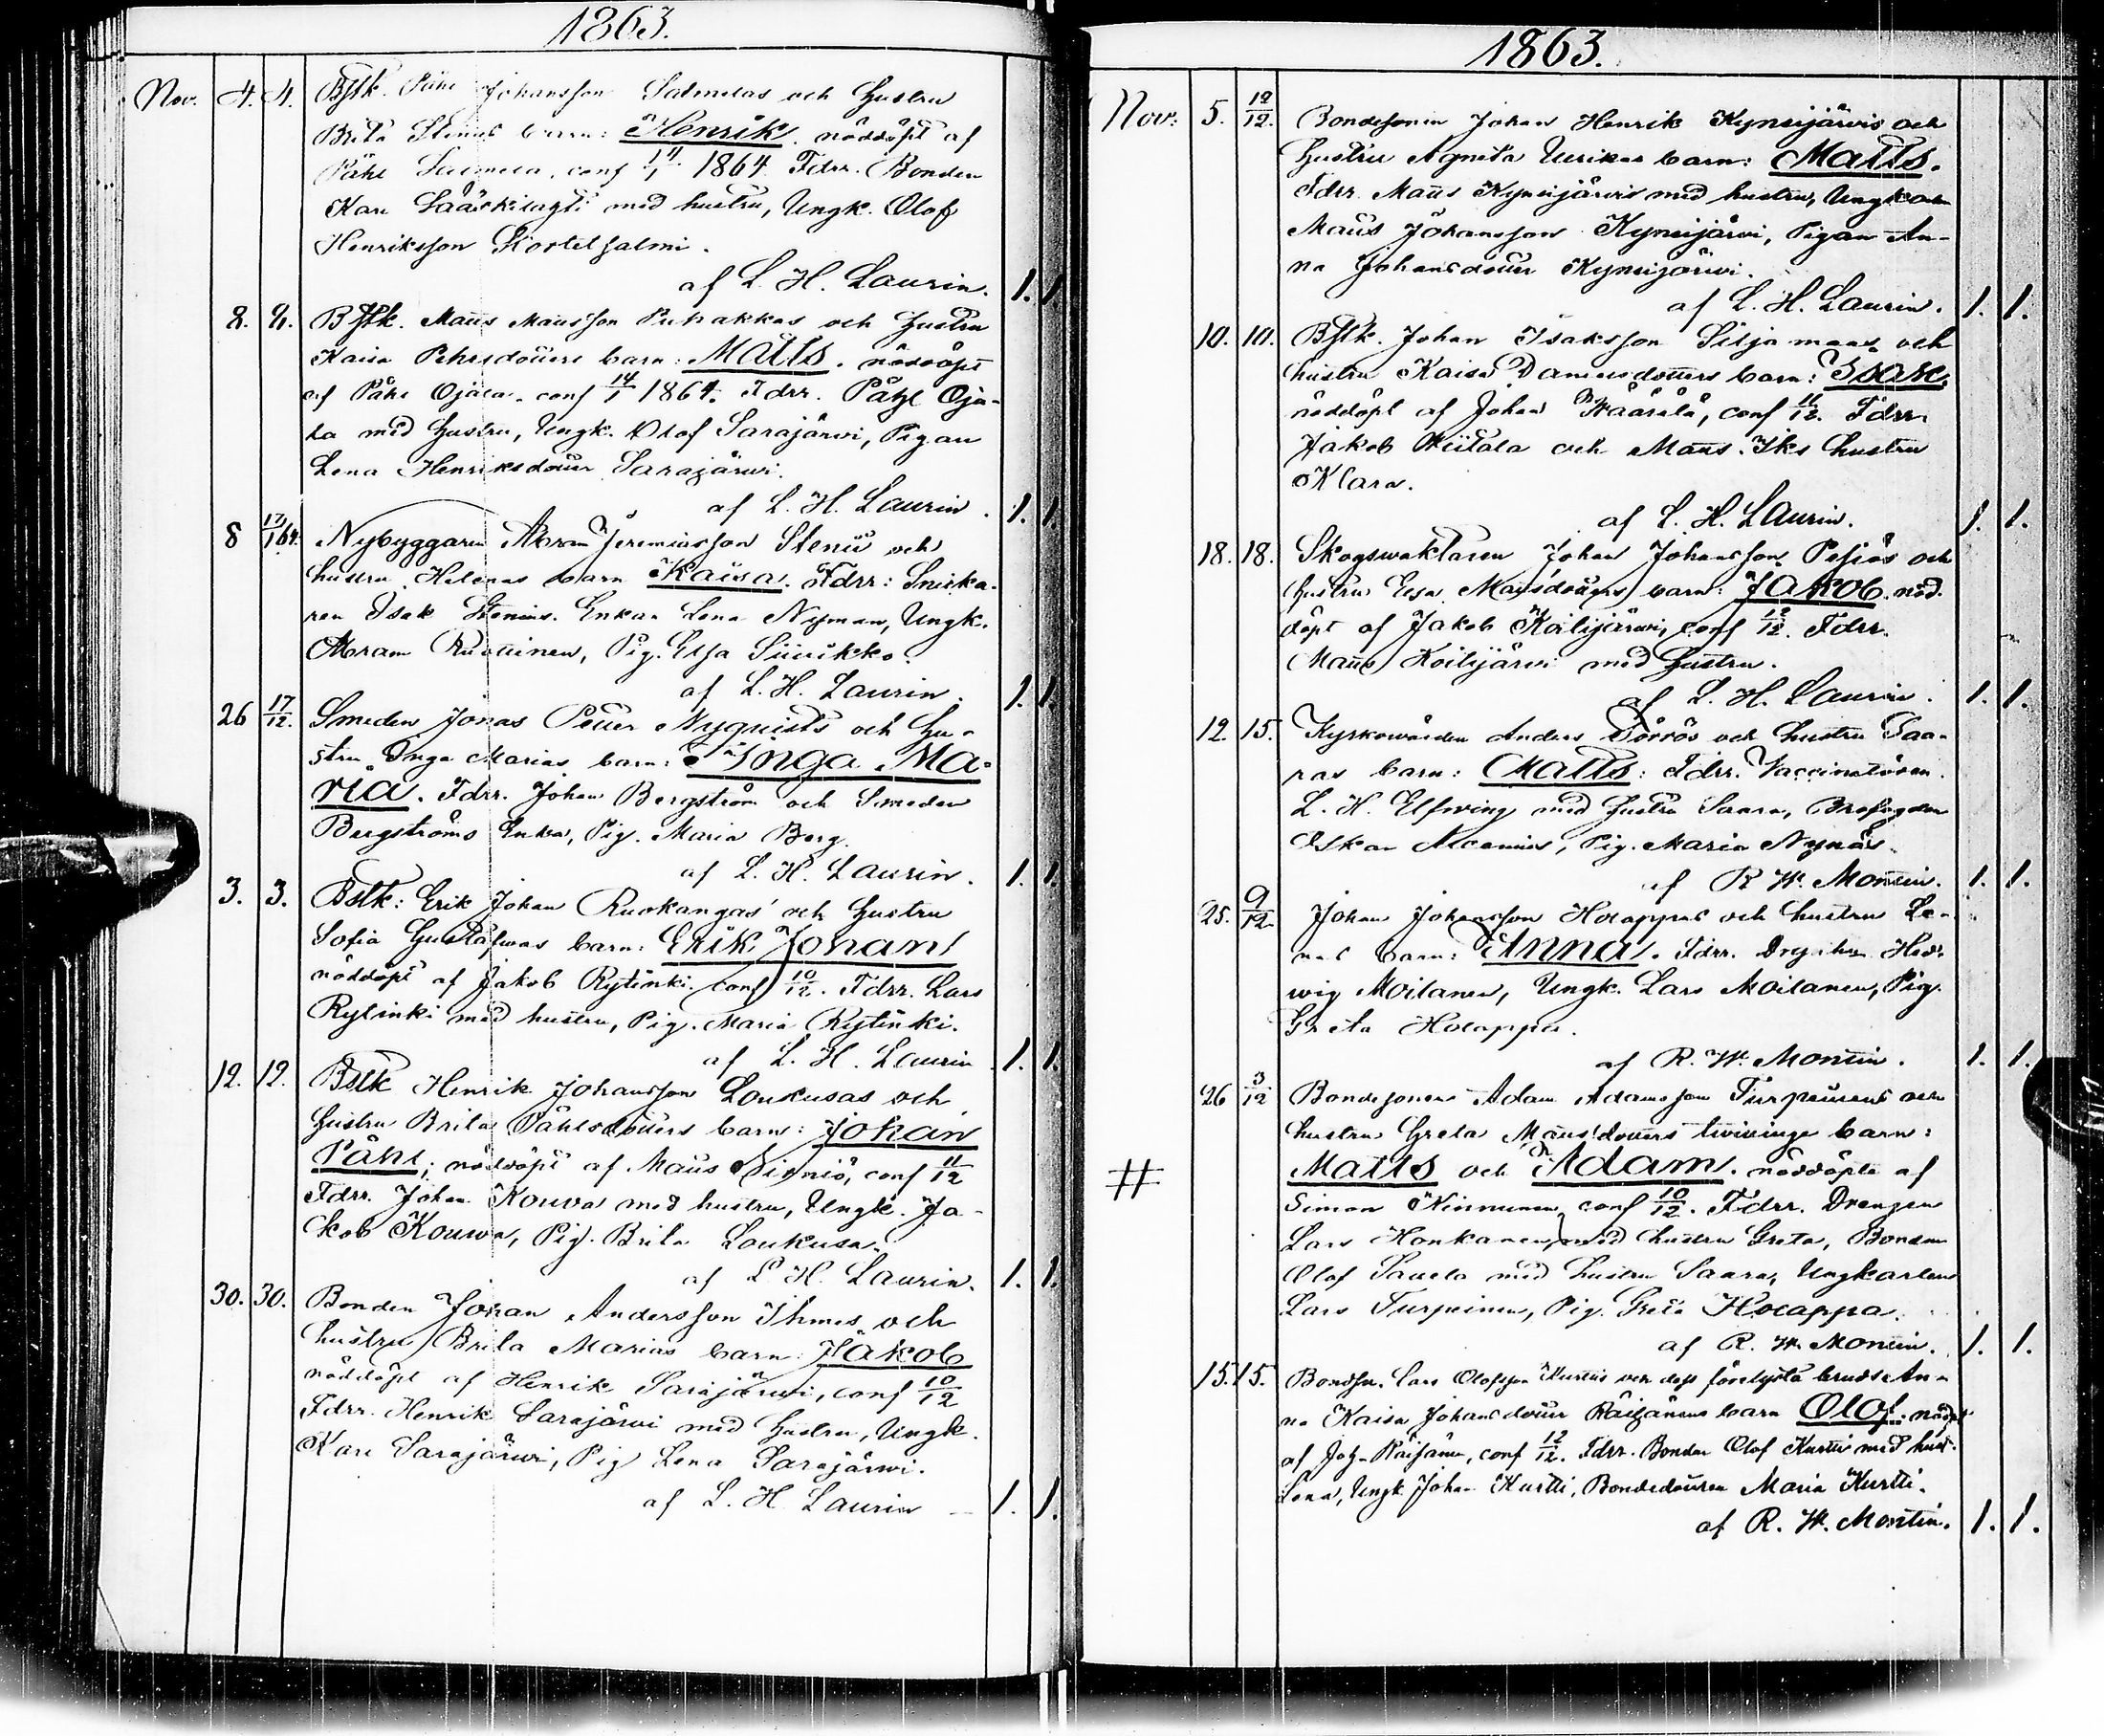 1863.
Nov. 4. 4. Bstk. Påhl Johansson Salmelas och hustru
Brita Stinas barn: Henrik. nöddöpt af
Påhl Salmela. conf 14/1 1864. Fdrr. Bonden
Karl Sääskilahti med hustru, Ungk. Olof
Henriksson Kortelsalmi.
af L. H. Laurin. 1. 1.
8. 8. Bstk. Matts Mattsson Puhakkas och hustru
Kaisa Pehrsdotters barn: Matts. nöddöpt
af Påhl Ojala. conf 14/1 1864. Fdrr. Påhl Oja-
la med hustru, Ungk. Olof Sarajärwi, Pigan
Lena Henriksdotter Sarajärwi.
af L. H. Laurin. 1. 1.
8 17/1 64. Nybyggaren Abram Jeremiasson Stenii och
hustru Helenas barn Kaisa. Fdrr: Snicka-
ren Isak Stenius. Enkan Lena Nyman, Ungk.
Abram Ruottinen, Pig. Elsa Siirikko.
af L. H. Laurin. 1. 1.
26 17/12. Smeden Jonas Petter Nyquists och hu-
stru Inga Marias barn: Inga Ma-
ria. Fdrr. Johan Bergström och Smeden
Bergströms Enka, Pig. Maria Berg.
af L. H. Laurin. 1. 1.
3. 3. Bstk: Erik Johan Ruokangas' och hustru
Sofia Gustafwas barn: Erik Johan
nöddöpt af Jakob Rytinki. conf 10/12. Fdrr. Lars
Rytinki med hustru, Pig. Maria Rytinki.
af L. H. Laurin. 1. 1.
12. 12. Bstk Henrik Johansson Loukusas och
hustru Brita Påhlsdotters barn: Johan
Påhl; nöddöpt af Matts Niemiö, conf 11/12
Fdrr. Johan Kouva med hustru, Ungk. Ja-
kob Kouwa, Pig. Brita Loukusa.
af L. H. Laurin. 1. 1.
30. 30. Bonden Johan Andersson Ihmes och
hustru Brita Marias barn: Jakob
nöddöpt af Henrik Sarajärwi, conf 10/12
Fdrr. Henrik Sarajärwi med hustru, Ungk.
Karl Sarajärwi, Pig Lena Sarajärwi.
af L. H. Laurin 1. 1.
1863.
Nov. 5. 12/12. Bondesonen Johan Henrik Kynsijärwis och
hustru Agneta Ulrikas barn: Matts.
Fdrr. Matts Kynsijärwis med hustru, Ungkarlen
Matts Johansson Kynsijärwi, Pigan An-
na Johansdotter Kynsijärwi.
af L. H. Laurin. 1. 1.
10. 10. Bstk. Johan Isaksson Siljamaas och
hustru Kaisa Danielsdotters barn: Isak.
nöddöpt af Johan Määrälä, conf 11/12. Fdrr.
Jakob Wiitala och Matts Iks hustru
Klara.
af L. H. Laurin. 1. 1.
18. 18. Skogswaktaren Johan Johansson Pesiös och
hustru Elsa Mattsdotters barn: Jakob. nöd-
döpt af Jakob Koilijärwi, conf 12/12. Fdrr.
Matts Koilijärwi med hustru.
af L. H. Laurin. 1. 1.
12. 15. Kyrkowärden Anders Törrös och hustru Saa-
ras barn: Matts: Fdrr. Vaccinatören
L. H. Elfwing med hustru Saara, Brofogden
Oskar Alcenius, Pig. Maria Nynäs.
af R. W. Montin. 1. 1.
25. 9/12. Johan Johansson Holappas och hustru Le-
nas barn: Anna. Fdrr. Drengen Hed-
wig Moilanen, Ungk. Lars Moilanen, Pig.
Greta Holappa.
af R. W. Montin. 1. 1.
26 3/12 Bondesonen Adam Adamsson Turpeinens och
hustru Greta Mattsdotters twillinge barn:
# Matts och Adam. nöddöpta af
Simon Kinnunen, conf 10/12. Fdrr. Drengen
Lars Honkanen, med hustru Greta, Bonden
Olof Sauela med hustru Saara, Ungkarlen
Lars Turpeinen, Pig. Greta Holappa.
af R. W. Montin. 1. 1.
15. 15. Bondsn. Lars Olofsson Kurttis och dess förelysta brud An-
na Kaisa Johansdotter Räisänens barn Olof. nöddpt
af Joh. Räisänen, conf 12/12. Fdrr. Bonden Olof Kurtti med hust.
Lena, Ungk Johan Kurtti, Bondedottren Maria Kurtti.
af R. W. Montin. 1. 1.